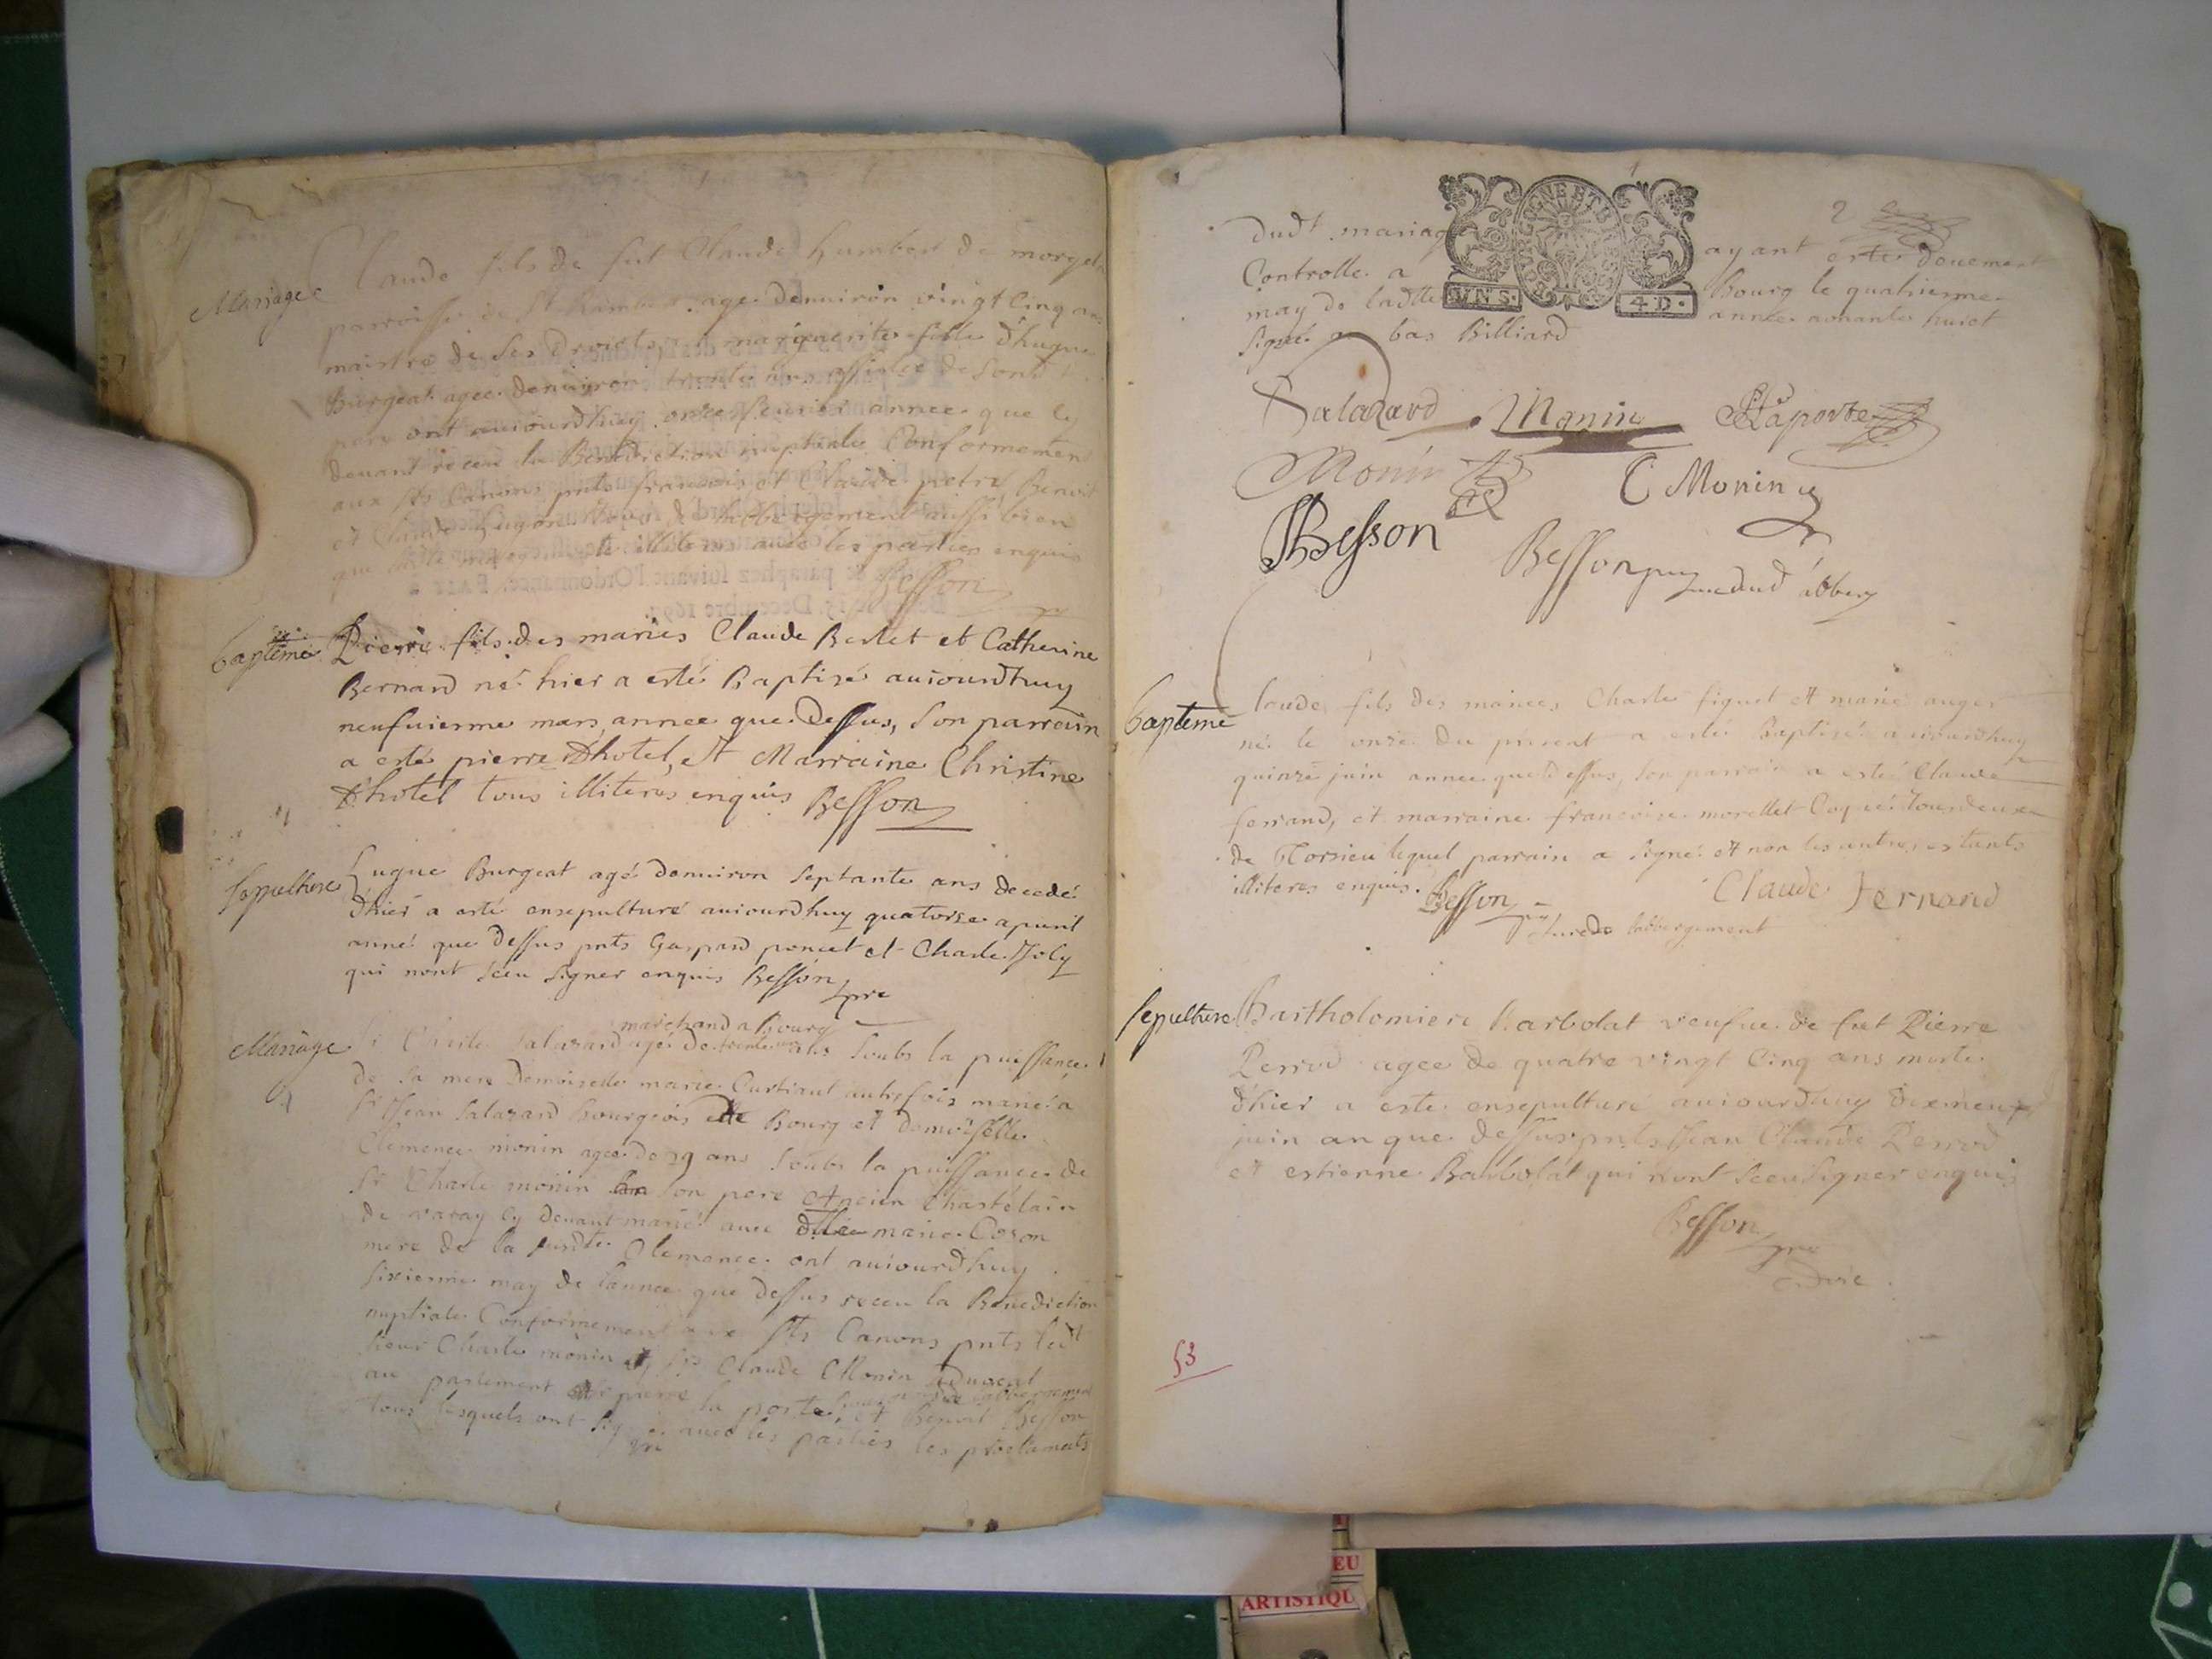 Mariage
Claude fils de feu Claude humbert de morgel
parroisse de St Rambert age denuiron vingt Cinq ans
maistre de ses Droicts et margueritte fille dhugue
Burgeat agee denuiron trente ans assistee de sond
pere ont auiourdhuy onze feurier annee que cy
deuant receu la Benediction nuptiale Conformement
aux sts Canons pnts francois et Claude pietre, Benoit
et Claude hugon tous de labergement aussi bien
que illiteres auec les parties enquis
Besson
baptême Pierre fils des mariés Claude Berlet et Catherine
Bernard né hier a esté Baptisé auiourdhuy
neufuierme mars annee que Dessus, son parrain
a esté pierre Dhotel, et Marraine Christine
Dhotel tous illiteres enquis Besson
sepulthure hugue Burgeat agé denuiron septante ans decedé
dhier a esté ensepulturé auiourdhuy quatorze apuril
année que dessus pnts Gaspard poncet et Charle Joly
qui nont sceu signer enquis Besson
pre
marchand a Bourg
Mariage Sr Salazard agé de trente ans soubs la puissance
de sa mere Demoiselle marie Curtiaut autrefois marié a
Sr Jean Salazard bourgeois de Bourg et demoiselle
Clemence monin agee de 29 ans soubs la puissance de
Sr Charle monin son pere Ancien Chastelain
de varay cy deuant marié auec dlle marie Cozon
mere de la susdte Clemence ont auiourdhuy
sixieme may de lannee que dessus receu la Benediction
nuptiale Conformement aux sts Canons pnts led
sieur Charle monin et Sr Claude Monin aduocat
au parlement pierre la porte et Benoit Besson
tous lesquels ont signé auec les parties les proclamats
2
dudt mariage ayant esté deuement
Controllé a Bourg le quatrieme
may de ladtte année nonante huict
signé a bas Billiard
BOURGNE ET BRESSE
VN S. 4 D.
Salazard Monin Laporte
Monin C Monin
Besson
Besson pre dud abberg
baptême Claude fils des mariés Charle figuet et marie auger
né le onze du present a esté Baptisé auiourdhuy
quinze juin annee que dessus, son parrain a esté Claude
ferrand, et marraine francoise morellet
de lequel parrain a signé et non les autres estants
illiteres enquis. Besson Claude Fernand
Curé de labbergement
sepulthure Bartholomiere Barbolat veufue de fet Pierre
Perrod agee de quatre vingt Cinq ans morte
dhier a esté ensepulturé auiourdhuy dixneuf
juin an que dessus pnts Jean Claude Perrod
et estienne Barbolat qui nont sceu signer enquis
Besson
pre
53
EU
ARTISTIQU